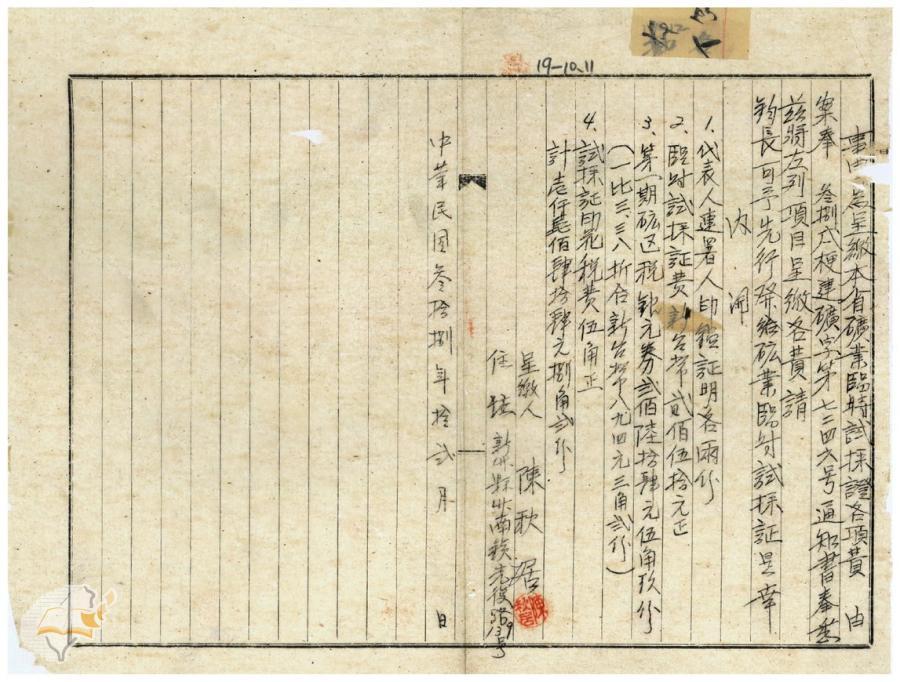 19-10.11
事由 為呈繳本省礦業臨時試採證各項費 由
案奉 叁捌戌梗建礦字第七二四六号通知書奉悉
茲將左列項目呈繳各費請
鈞長 可予先行發給砿業臨时試採証是幸
內開
1. 代表人連署人印鑑証明各兩份
2. 臨时試採証費新台幣貳佰伍拾元正
3. 第一期砿区税銀元券貳佰陸拾肆元伍角玖分
(一比三.三八折合新台幣八九四元三角貳分)
4. 試採証印花税費伍角正
計壱仟壱佰肆拾肆元捌角貳分
呈繳人 陳秋居
住址 新竹縣竹南鎮光復路139号
中華民国叁拾捌年拾貳月 日